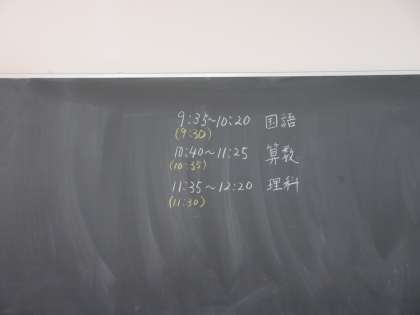 9:35~10:20 国語
(9:30)
10:40~11:25 算数
(10:35)
11:35~12:20 理科
(11:30)